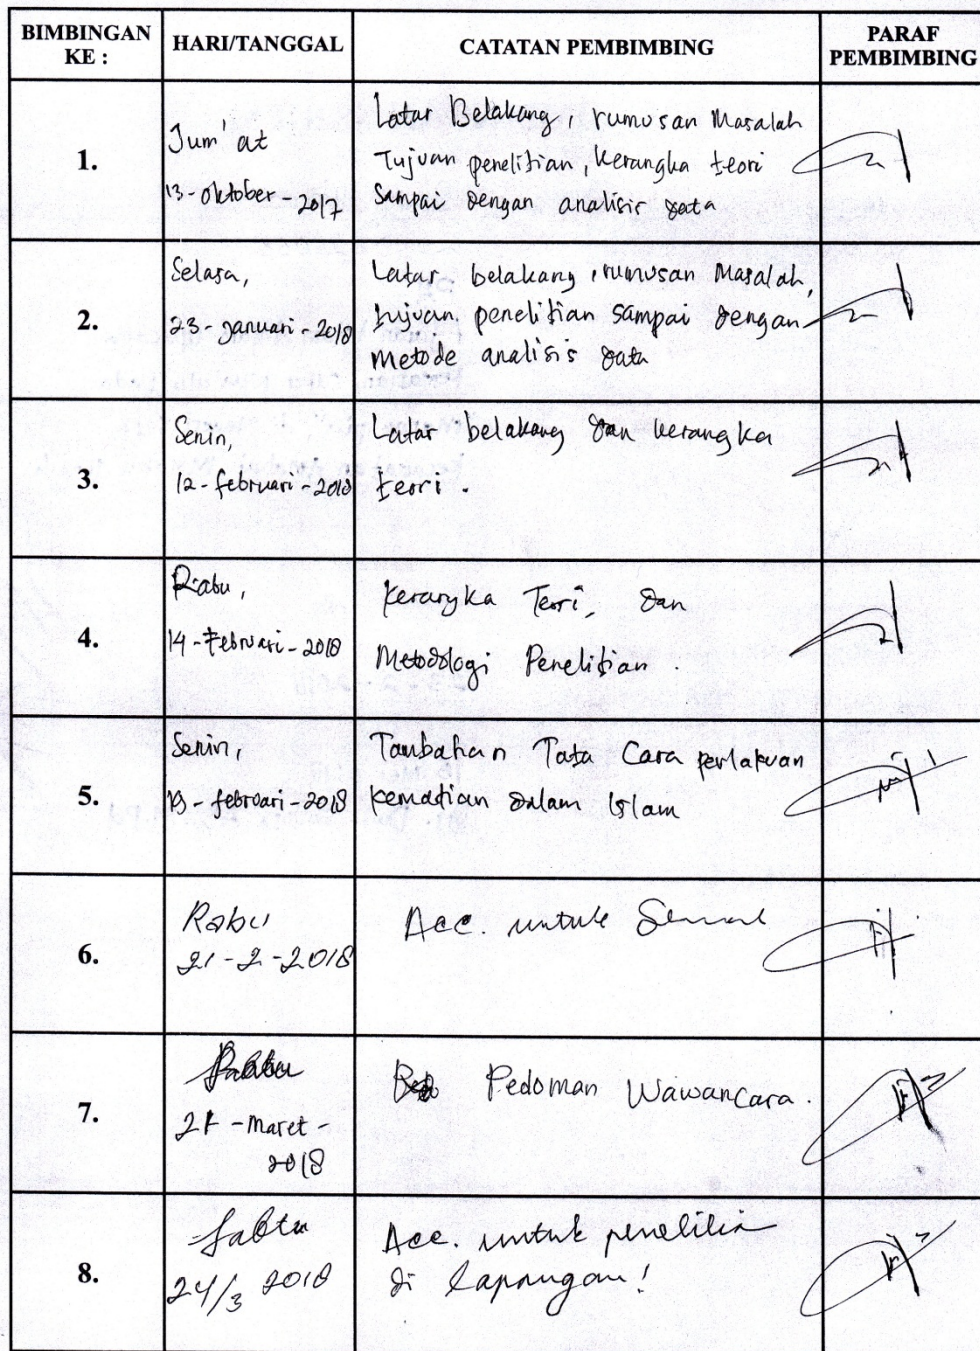 BIMBINGAN KE : HARI/TANGGAL CATATAN PEMBIMBING PARAF PEMBIMBING
1.
Jum'at
13-Oktober-2017
Latar Belakang, rumusan Masalah
Tujuan penelitian, kerangka teori
sampai dengan analisis data
2.
Selasa,
23-Januari-2018
Latar belakang, rumusan Masalah,
tujuan penelitian sampai dengan
Metode analisis data
3.
Senin,
12-februari-2018
Latar belakang dan kerangka
teori.
4.
Rabu,
14-Februari-2018
Kerangka Teori, dan
Metodologi Penelitian.
5.
Senin,
19-februari-2018
Tambahan Tata Cara perlakuan
kematian dalam Islam
6.
Rabu
21-2-2018
Acc. untuk
7.
21-Maret-
2018
Pedoman Wawancara.
8.
Sabtu
24/3 2018
Acc. untuk penelitian
di lapangan!